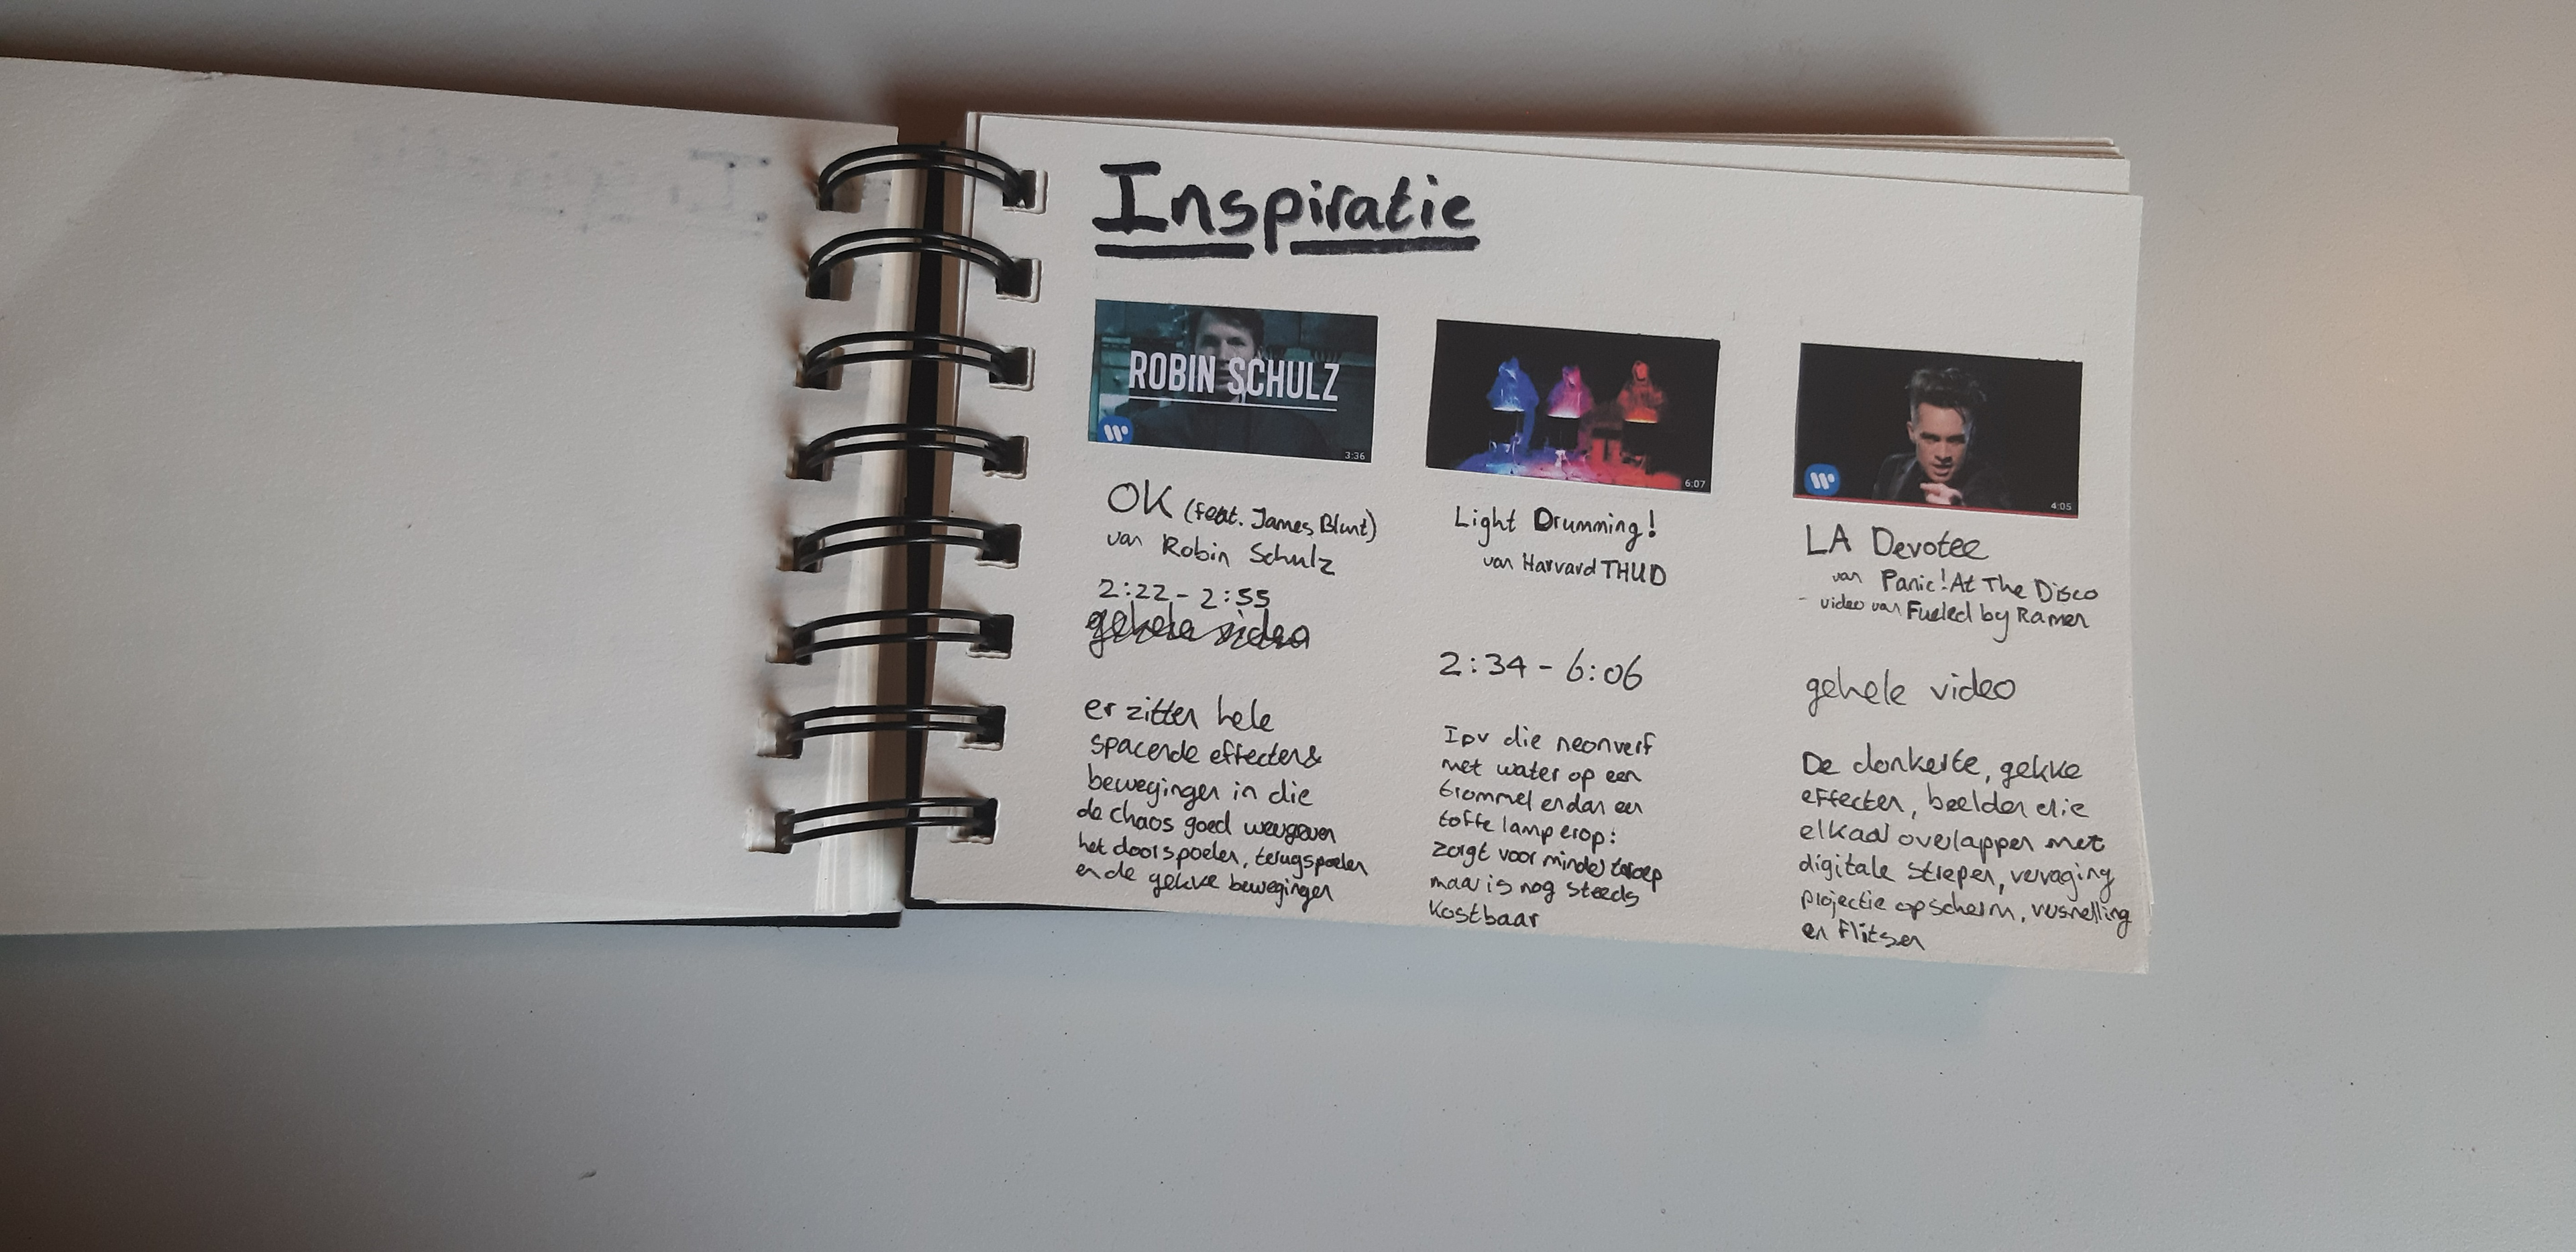 Inspiratie
ROBIN SCHULZ
3:36
OK (feat. James Blunt)
van Robin Schulz
2:22 - 2:55
gehele video
er zitten hele
spacende effecten &
bewegingen in die
de chaos goed weergeven
het doorspoelen, terugspoelen
en de gekke bewegingen
6:07
Light Drumming!
van Harvard THUD
2:34 - 6:06
Ipv die neonverf
met water op een
trommel en dan een
toffe lamp erop:
zorgt voor minder troep
maar is nog steeds
kostbaar
4:05
LA Devotee
van Panic! At The Disco
- video van Fueled by Ramen
gehele video
De donkerte, gekke
effecten, beelden die
elkaar overlappen met
digitale strepen, vervaging
projectie op scherm, versnelling
en flitsen